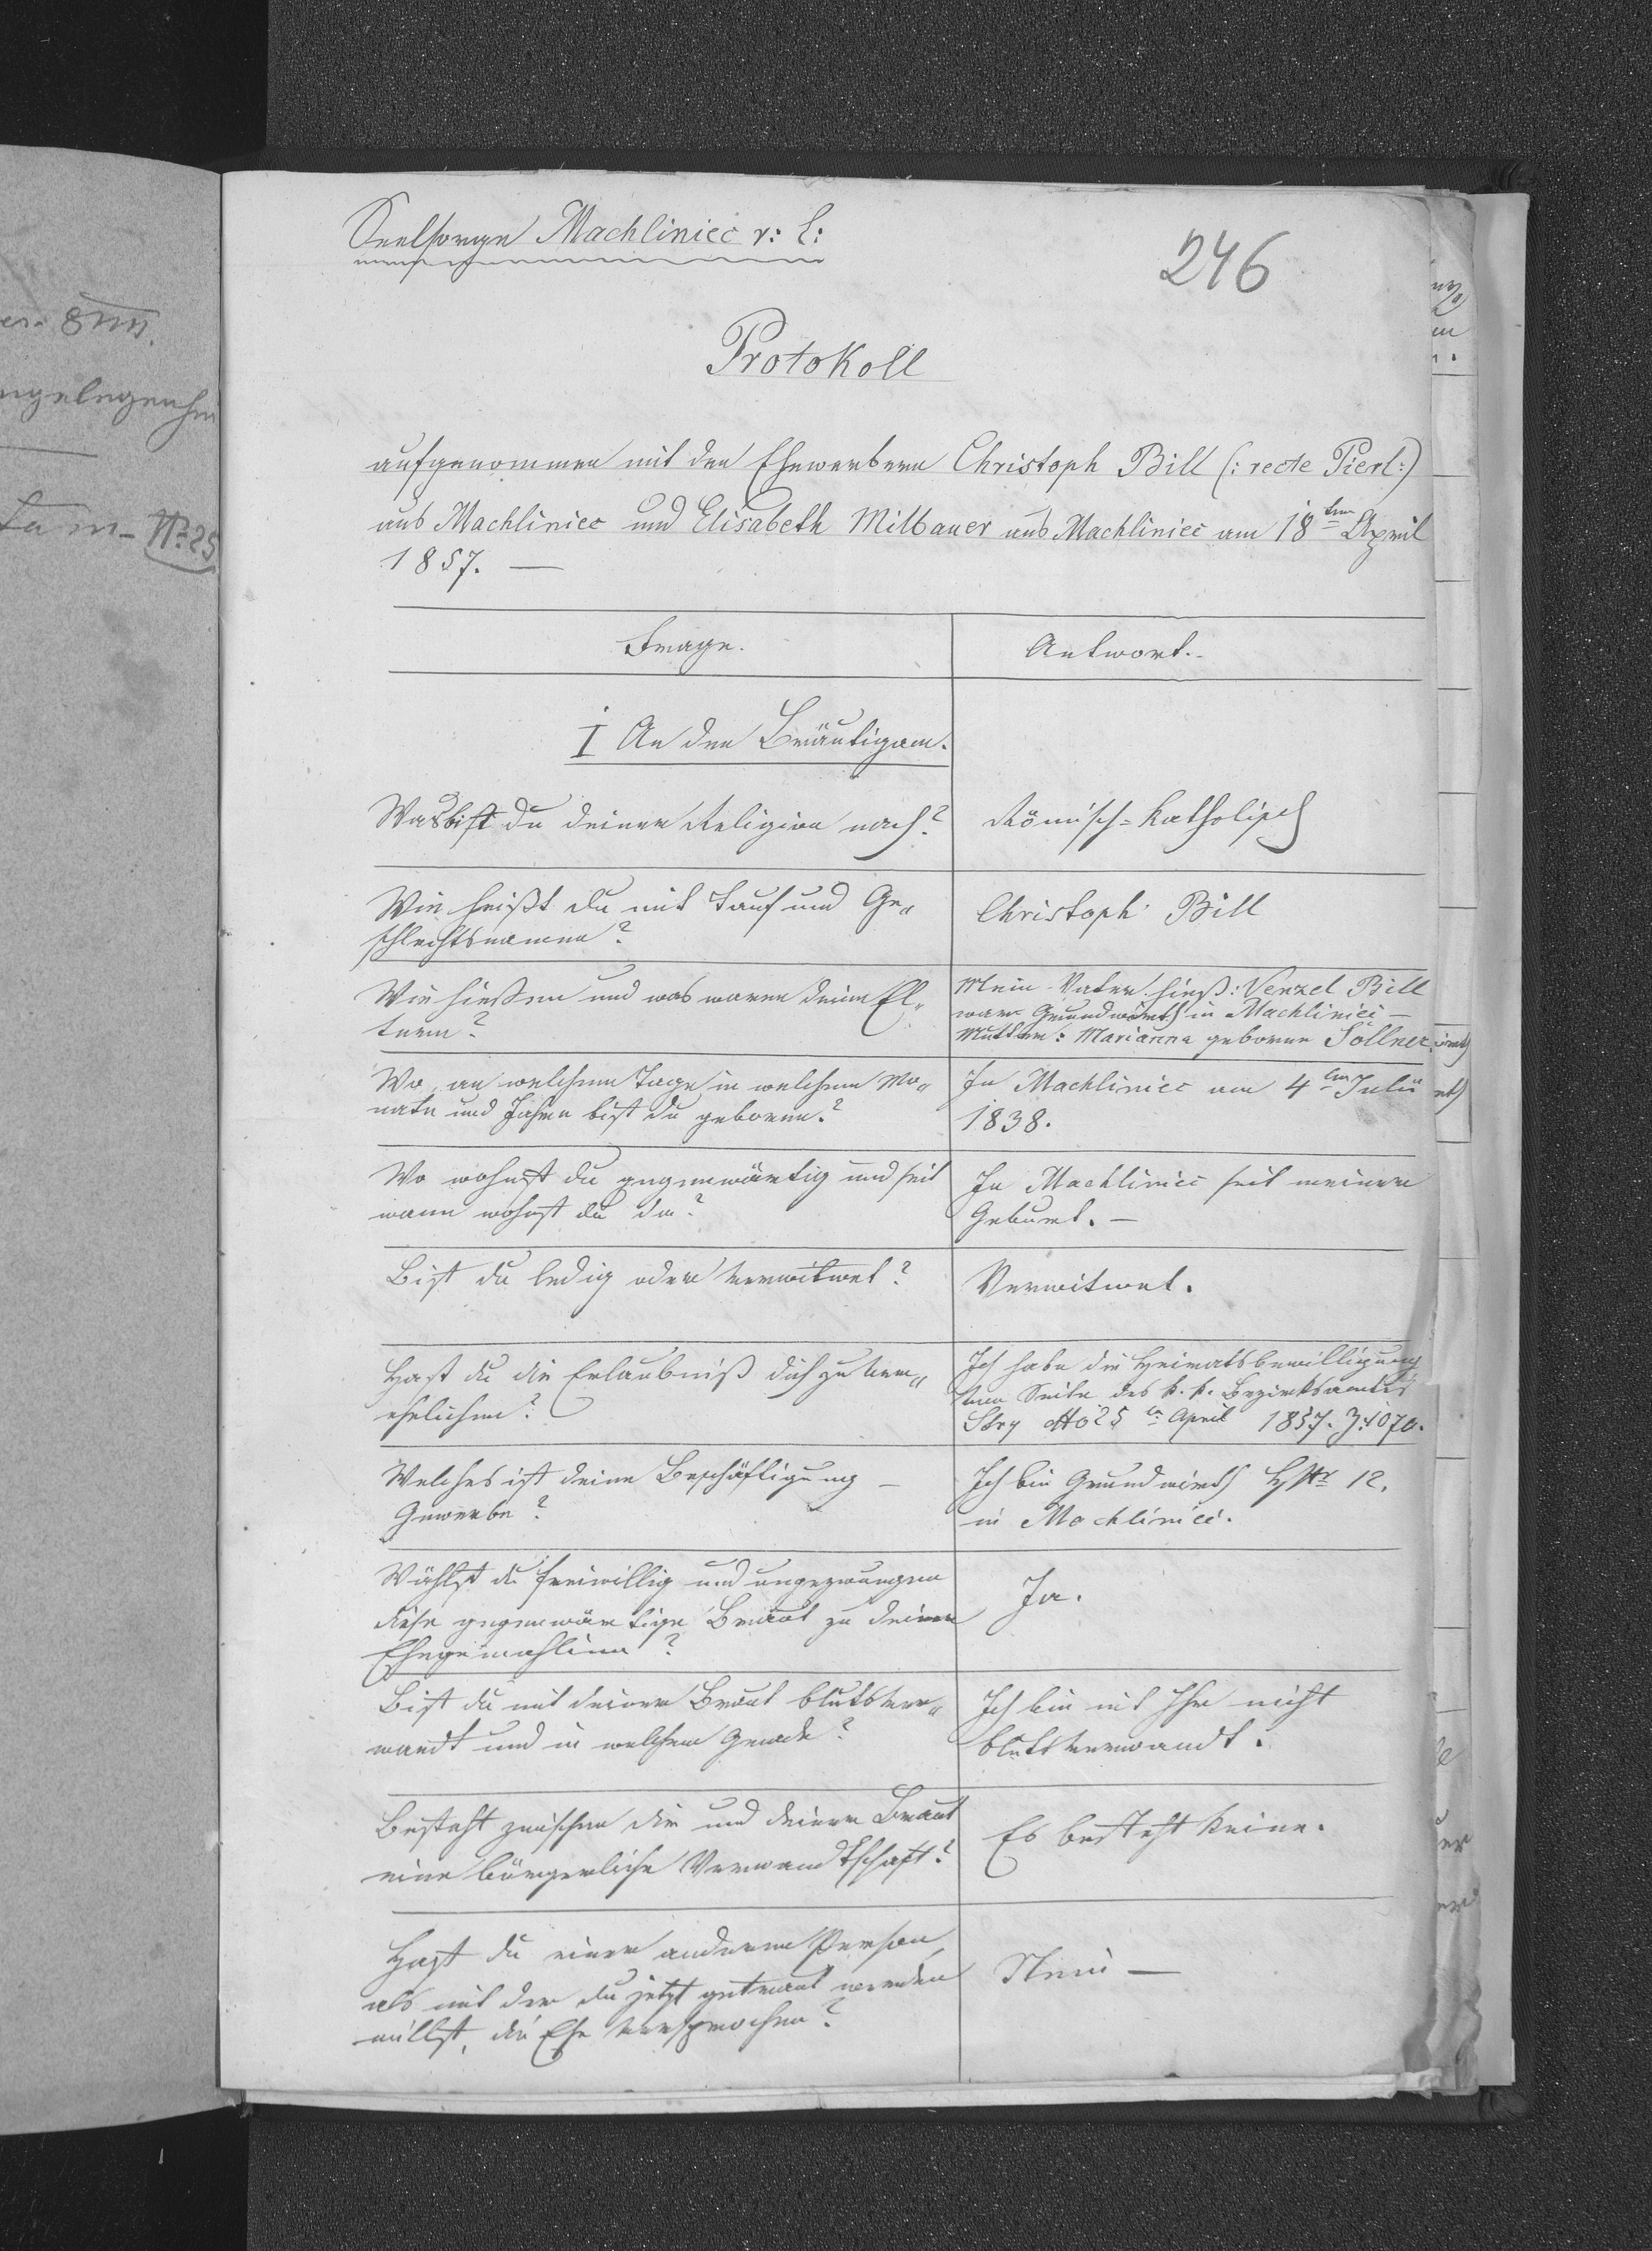 Seelsorge Machliniec r: l:
246
Protokoll
aufgenommen mit den Ehewerbern Christoph Bill (: recte Pierl:)
aus Machliniec und Elisabeth Milbauer aus Machliniec am 18ten April
1857. —
Frage.
Antwort.
I An den Bräutigam.
Was bist du deiner Religion nach?
Römisch-Katholisch
Wie heißt du mit Tauf und Ge„
schlechtsnamen?
Christoph Bill
Wie hießen und was waren deine El„
tern?
Mein Vater hieß: Venzel Bill
war Grundwirth in Machliniec —
Mutter: Marianna geborene Söllner.
Wo, an welchem Tage, in welchem Mo„
nate und Jahre bist du geboren?
In Machliniec am 4ten Julii
1838.
Wo wohnst du gegenwärtig und seit
wann wohnst du da?
In Machliniec seit meiner
Geburt. —
Bist du ledig oder verwitwet?
Verwitwet.
Hast du die Erlaubniß dich zu ver„
ehelichen?
Ich habe die Heiratsbewilligung
von Seite des k. k. Bezirksamtes
Stry dto 25 ten April 1857. Z. 1070.
Welches ist deine Beschäftigung —
Gewerbe?
Ich bin Grundwirth HNr 12.
in Machliniec.
Wählst du freiwillig und ungezwungen
diese gegenwärtige Braut zu deiner
Ehegemahlinn?
Ja.
Bist du mit deiner Braut blutsver„
wandt und in welchem Grade?
Ich bin mit Ihr nicht
blutsverwandt.
Besteht zwischen dir und deiner Braut
eine bürgerliche Verwandtschaft?
Es besteht keine.
Hast du einer anderen Person,
als mit der du jetzt getraut werden
willst, die Ehe versprochen?
Nein —
ngelegenhei
Nr. 25